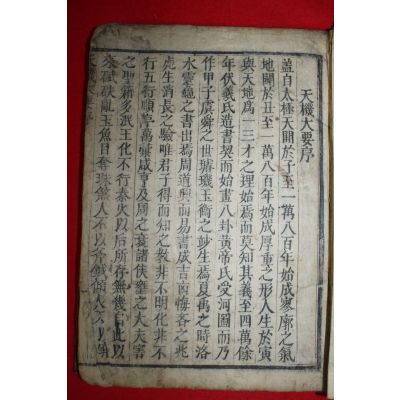 天機大要序
蓋自太極天開於子至一萬八百年始成寥廓之氣
地闢於丑至一萬八百年始成厚重之形人生於寅
與天地爲一三才之理始焉而莫知其義至四萬餘
年伏羲氏造書契而始畫八卦黃帝氏受河圖而乃
作甲子虞舜之世璿璣玉衡之妙生焉夏禹之時洛
水靈龜之書出焉周道興而易書成吉凶悔吝之兆
虛生消長之驗唯君子得而知之敎非不明化非不
行五行順亨萬彙咸亨及周之衰諸侯壅之大夫害
之聖籍多泯王化不行秦失以后所存無幾自此以
來弑